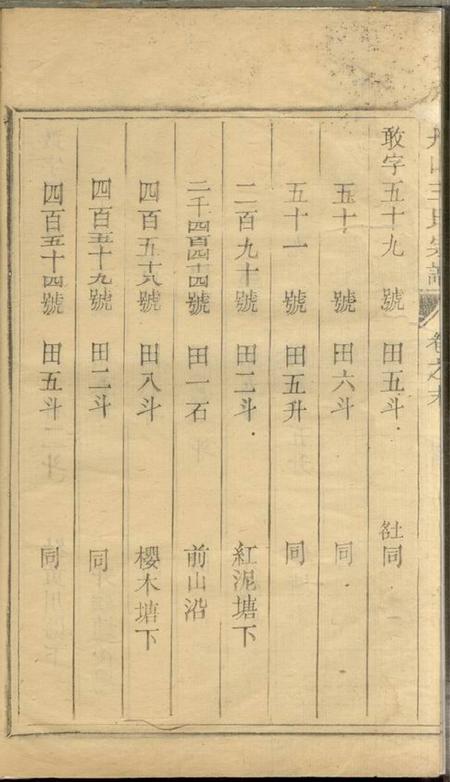 王氏宗譜 卷之
敢字五十九號 田五斗 社同
五十號 田六斗 同
五十一號 田五升 同
二百九十號 田二斗 紅泥塘下
二千四百四十四號 田一石 前山沿
四百五十八號 田八斗 櫻木塘下
四百五十九號 田二斗 同
四百五十四號 田五斗 同